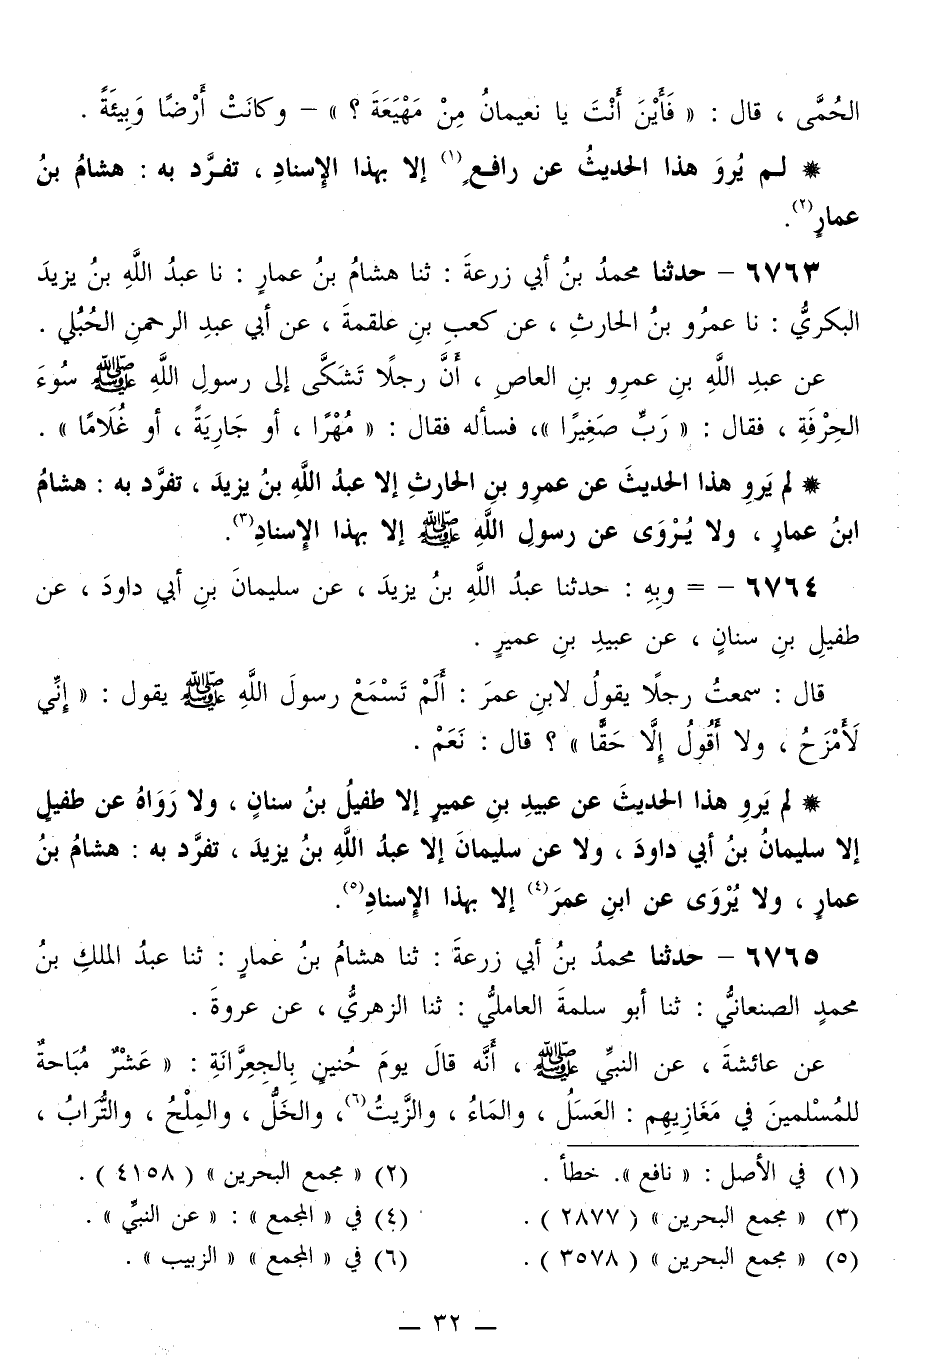 الحُمَّى ، قال : « فَأَيْنَ أَنْتَ يا نعيمانُ مِنْ مَهْيَعَةَ ؟ » – وكانَتْ أَرْضًا وَبِيئَةً .
* لـم يُروَ هذا الحديثُ عن رافـعٍ(١) إلا بهذا الإسنادِ ، تفـرَّد به : هشامُ بنُ
عمارٍ(٢).
٦٧٦٣ – حدثنا محمدُ بنُ أبي زرعةَ : ثنا هشامُ بنُ عمارٍ : نا عبدُ اللَّهِ بنُ يزيدَ
البكريُّ : نا عمرُو بنُ الحارثِ ، عن كعبِ بنِ علقمةَ ، عن أبي عبدِ الرحمنِ الحُبُلي .
عن عبدِ اللَّهِ بنِ عمرِو بنِ العاصِ ، أَنَّ رجلًا تَشَكَّى إلى رسولِ اللَّهِ ﷺ سُوءَ
الحِرْفَةِ ، فقال : « رَبِّ صَغِيرًا »، فسأله فقال : « مُهْرًا ، أو جَارِيَةً ، أو غُلَامًا » .
* لم يَروِ هذا الحديثَ عن عمرِو بنِ الحارثِ إلا عبدُ اللَّهِ بنُ يزيدَ ، تفرَّد به : هشامُ
ابنُ عمارٍ ، ولا يُـرْوَى عن رسولِ اللَّهِ ﷺ إلا بهذا الإسنادِ(٣).
٦٧٦٤ – = وبِهِ : حدثنا عبدُ اللَّهِ بنُ يزيدَ ، عن سليمانَ بنِ أبي داودَ ، عن
طفيلِ بنِ سنانٍ ، عن عبيدِ بنِ عميرٍ .
قال : سمعتُ رجلًا يقولُ لابنِ عمرَ : أَلَمْ تَسْمَعْ رسولَ اللَّهِ ﷺ يقول : « إِنِّي
لَأَمْزَحُ ، ولا أَقُولُ إِلَّا حَقًّا » ؟ قال : نَعَمْ .
* لم يَروِ هذا الحديثَ عن عبيدِ بنِ عميرٍ إلا طفيلُ بنُ سنانٍ ، ولا رَوَاهُ عن طفيلٍ
إلا سليمانُ بنُ أبي داودَ ، ولا عن سليمانَ إلا عبدُ اللَّهِ بنُ يزيدَ ، تفرَّد به : هشامُ بنُ
عمارٍ ، ولا يُرْوَى عن ابنِ عمرَ(٤) إلا بهذا الإسنادِ(٥).
٦٧٦٥ – حدثنا محمدُ بنُ أبي زرعةَ : ثنا هشامُ بنُ عمارٍ : ثنا عبدُ الملكِ بنُ
محمدٍ الصنعانيُّ : ثنا أبو سلمةَ العامليُّ : ثنا الزهريُّ ، عن عروةَ .
عن عائشةَ ، عن النبيِّ ﷺ ، أَنَّه قالَ يومَ حُنينٍ بِالجِعِرَّانَةِ : « عَشْرٌ مُبَاحةٌ
للمُسْلمينَ في مَغَازِيهِم : العَسَلُ ، والمَاءُ ، والزَّيتُ(٦)، والخَلُّ ، والمِلْحُ ، والتُّرَابُ ،
(١) في الأصل : « نافع ». خطأ .
(٢) « مجمع البحرين » ( ٤١٥٨ ) .
(٣) « مجمع البحرين » ( ٢٨٧٧ ) .
(٤) في « المجمع » : « عن النبيِّ » .
(٥) « مجمع البحرين » ( ٣٥٧٨ ) .
(٦) في « المجمع » « الزبيب » .
— ٣٢ —